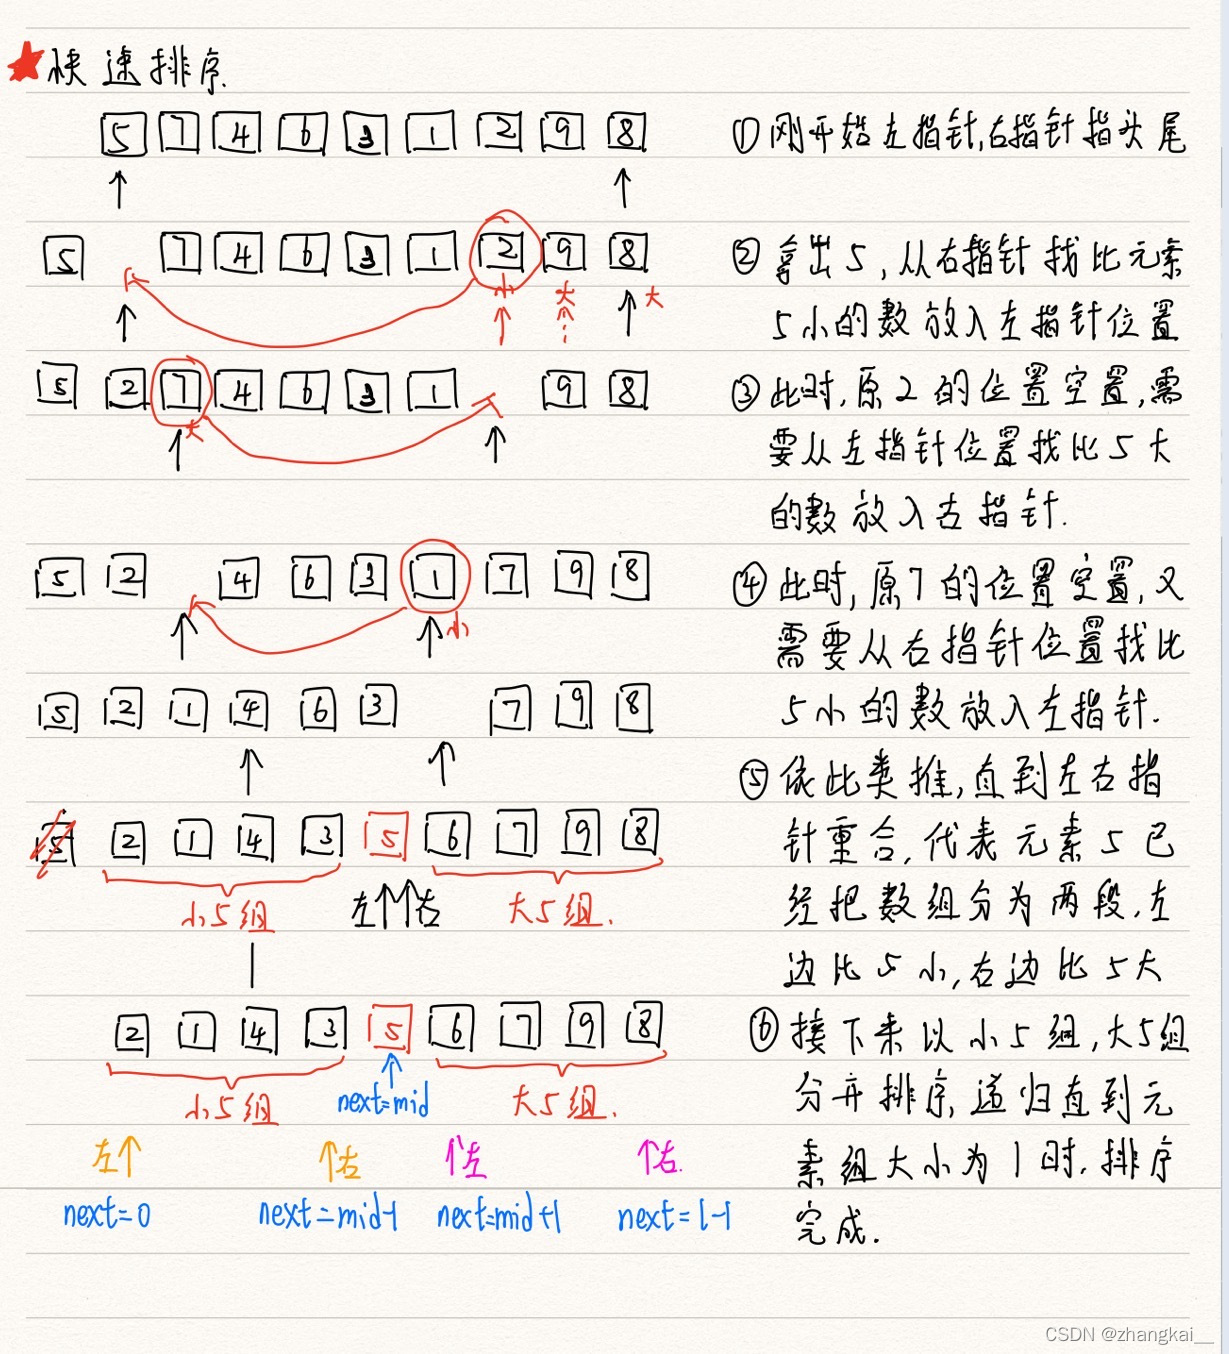 快速排序.
5 7 4 6 3 1 2 9 8
① 刚开始左指针,右指针指头尾
5 7 4 6 3 1 2 9 8
小 大 大
② 拿出5,从右指针找比元素
5小的数放入左指针位置
5 2 7 4 6 3 1 9 8
大
③ 此时,原2的位置空置,需
要从左指针位置找比5大
的数放入右指针.
5 2 4 6 3 1 7 9 8
小
④ 此时,原7的位置空置,又
需要从右指针位置找比
5小的数放入左指针.
5 2 1 4 6 3 7 9 8
⑤ 依此类推,直到左右指
针重合,代表元素5已
经把数组分为两段,左
边比5小,右边比5大
5 2 1 4 3 5 6 7 9 8
小5组 左 右 大5组.
2 1 4 3 5 6 7 9 8
小5组 next=mid 大5组.
⑥ 接下来以小5组,大5组
分开排序,递归直到元
素组大小为1时,排序
完成.
左 右 左 右.
next=0 next=mid-1 next=mid+1 next=l-1
CSDN @zhangkai__